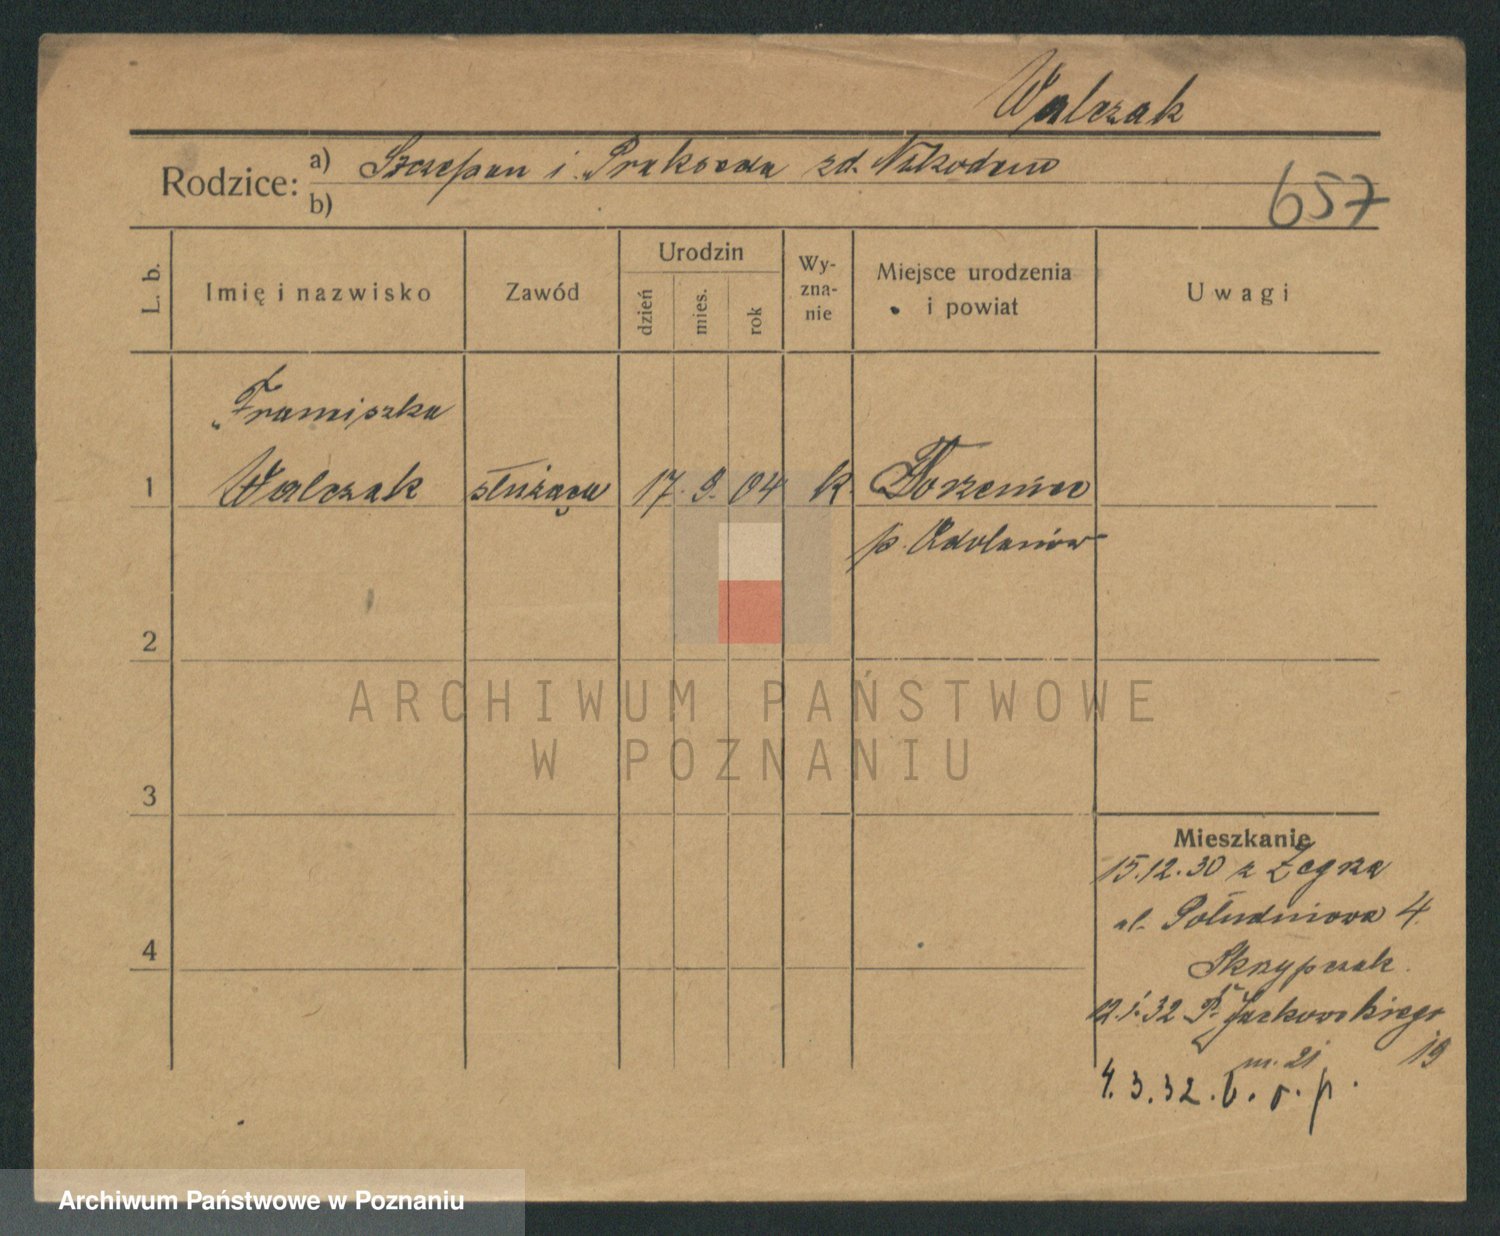 Walczak
Rodzice: a) Szczepan i Prakseda zd. Nikodem
b)
657
L. b. Imię i nazwisko Zawód Urodzin dzień mies. rok Wy-zna-nie Miejsce urodzenia i powiat Uwagi
Franciszka
1 Walczak służąca 17. 9. 04 k.
p. Adolanów
2
3
4
ARCHIWUM PAŃSTWOWE
W POZNANIU
Mieszkanie
15.12.30 z Zegrza
ul. Południowa 4
Skrzypczak.
12.1.32 P. Jackowskiego
m. 21 19
4.3.32. b. o. p.
Archiwum Państwowe w Poznaniu